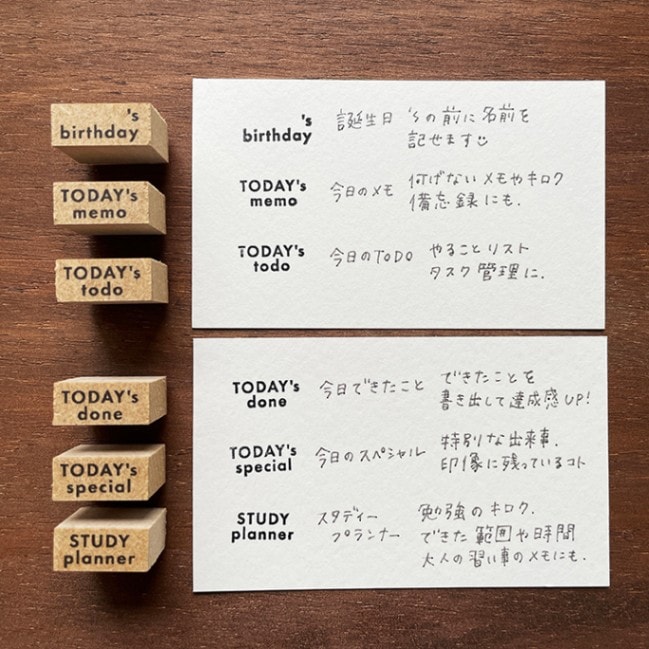 's
birthday
TODAY's
memo
TODAY's
todo
TODAY's
done
TODAY's
special
STUDY
planner
's
birthday
誕生日
'sの前に名前を
記せます
TODAY's
memo
今日のメモ
何げないメモやキロク
備忘録にも.
TODAY's
todo
今日のTODO
やることリスト
タスク管理に.
TODAY's
done
今日できたこと
できたことを
書き出して達成感UP!
TODAY's
special
今日のスペシャル
特別な出来事.
印像に残っているコト
STUDY
planner
スタディー
プランナー
勉強のキロク.
できた範囲や時間
大人の習い事のメモにも.